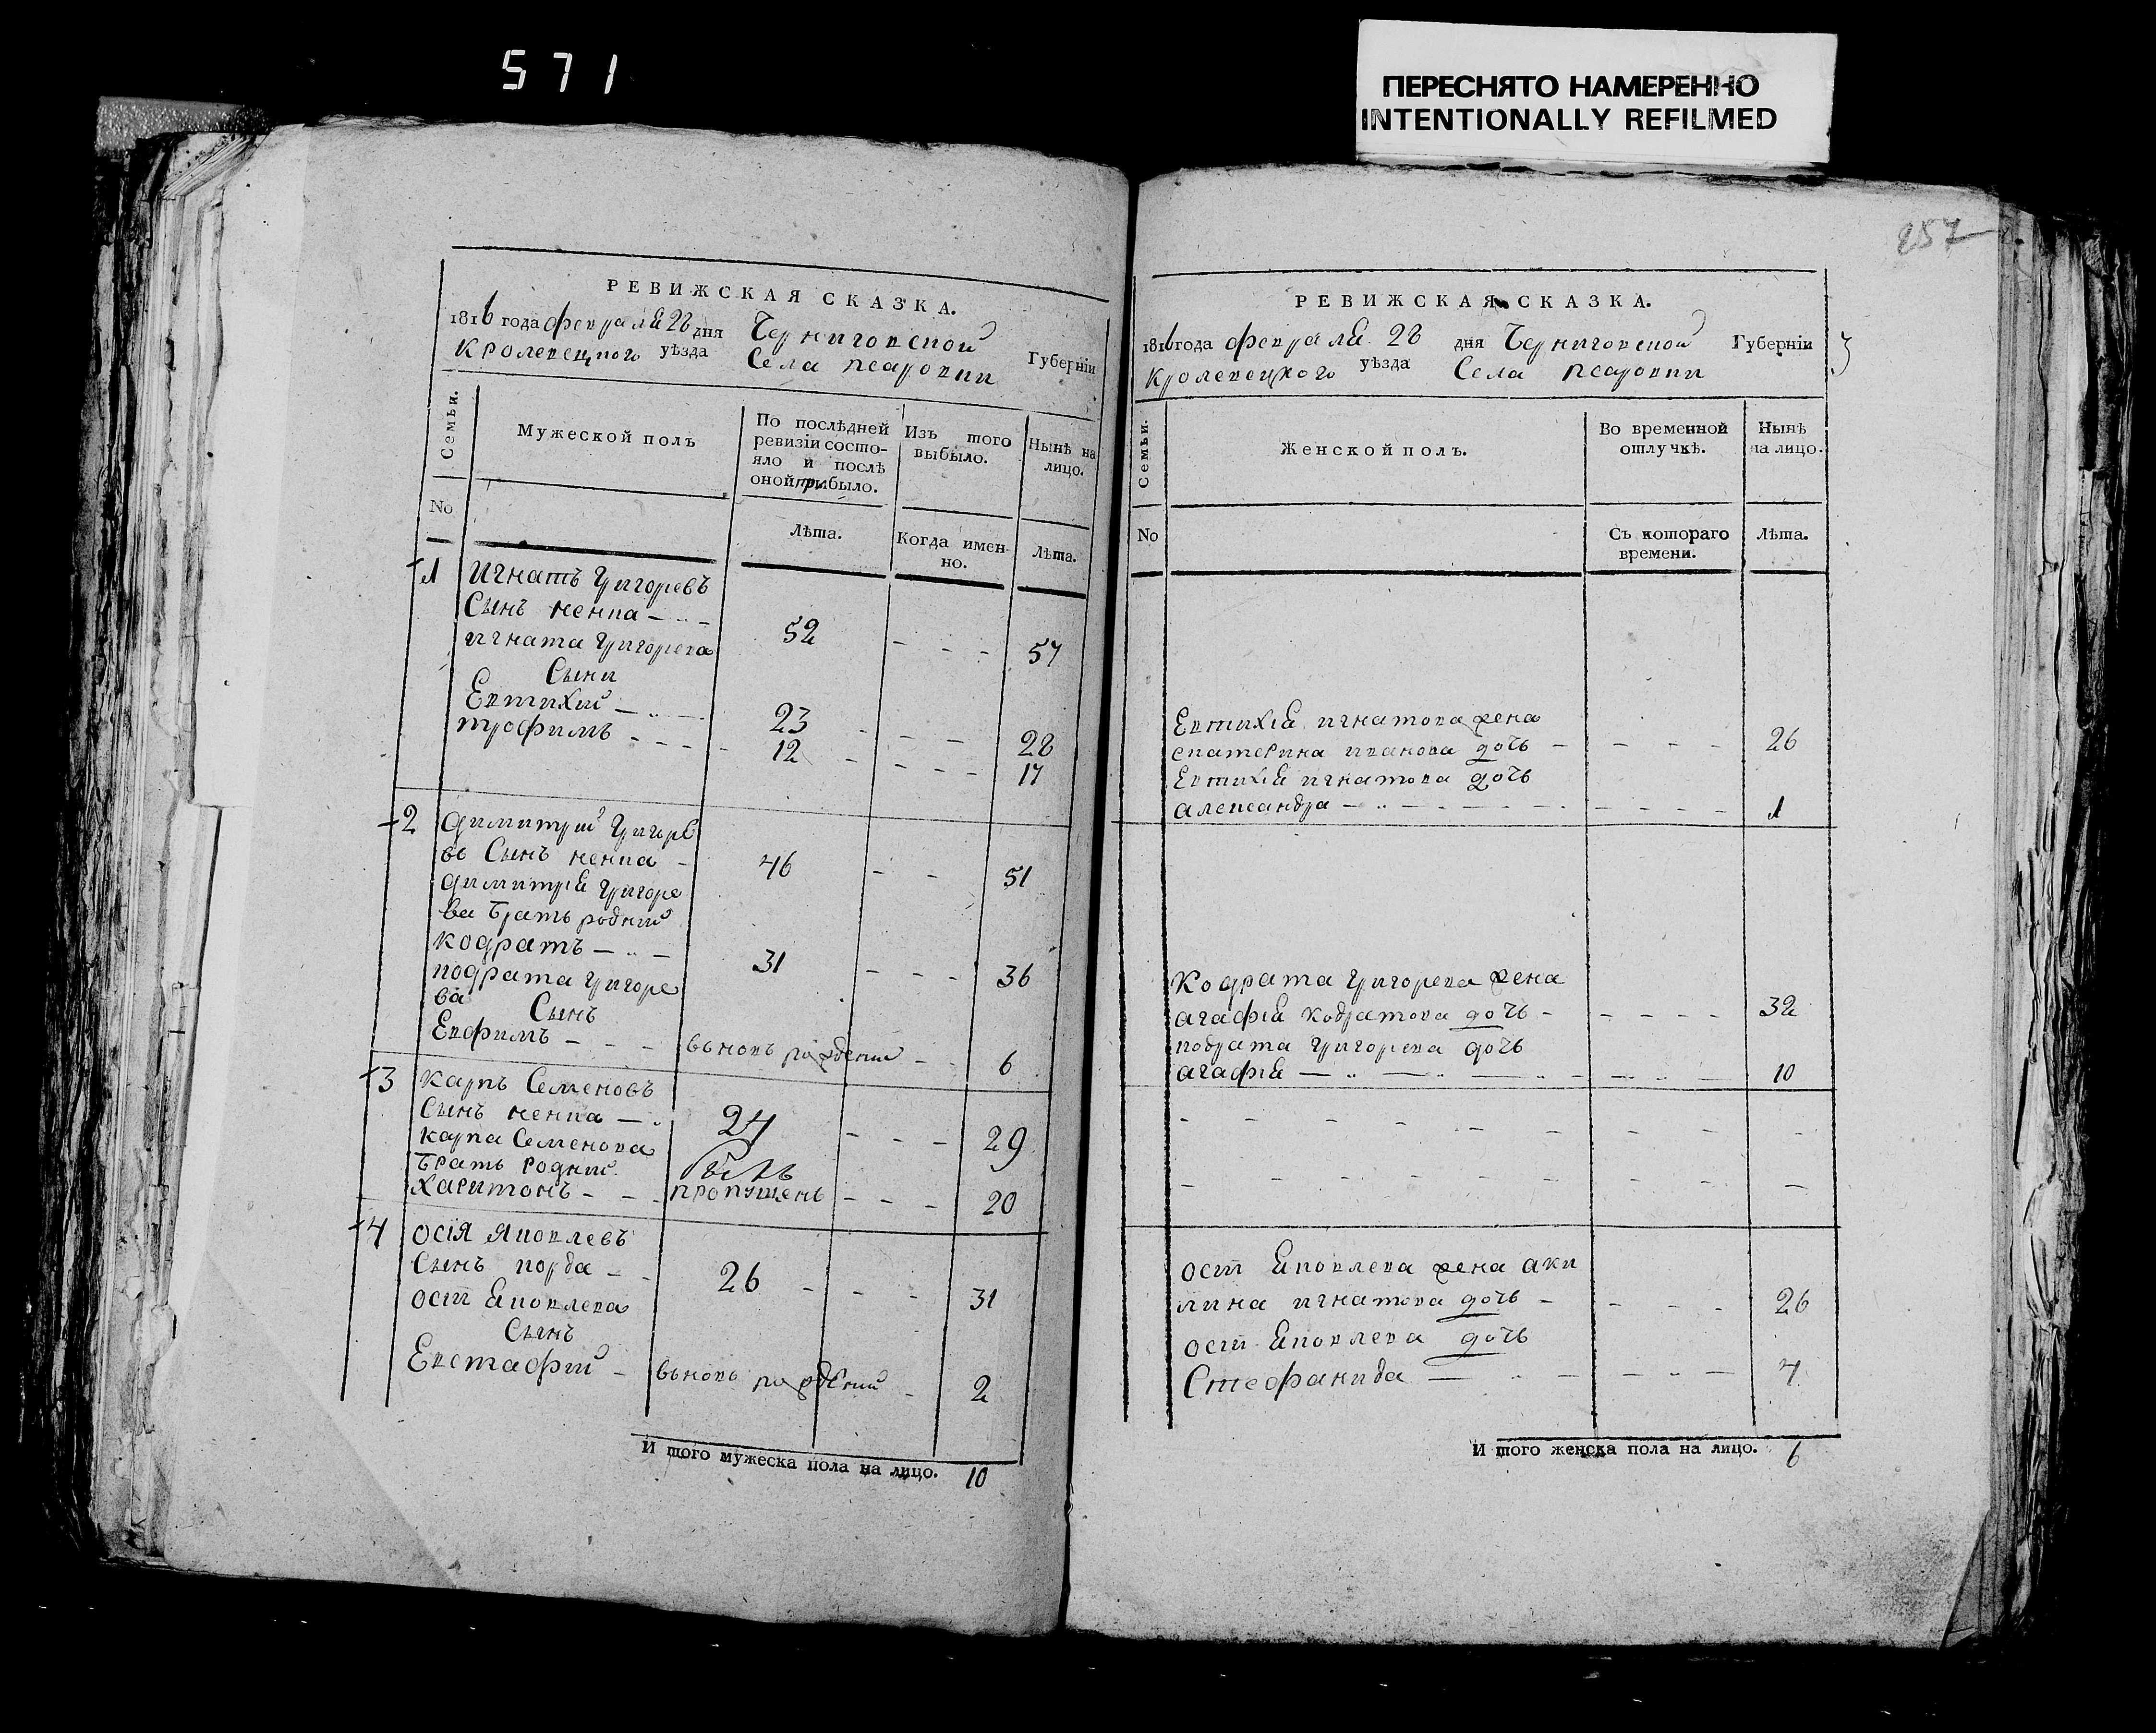 571
ПЕРЕСНЯТО НАМЕРЕННО
INTENTIONALLY REFILMED
257
РЕВИЖСКАЯ СКАЗКА.
1816 года февраля 28 дня Черниговской Губерніи
Кролевецкого уѣзда Села псаровки
Семьи.
Мужеской полъ
По послѣдней
ревизіи состо-
яло и послѣ
оной прибыло.
Изъ того
выбыло.
Нынѣ на
лицо.
No
Лѣта.
Когда имен-
но.
Лѣта.
1 Игнатъ Григоревъ
Сынъ ненка 52 57
игната Григорева
Сыни
Евтихий 23 28
трофимъ 12 17
2 Димитрий Григоре
въ Сынъ ненка 46 51
Димитрія Григоре
ва братъ родний
кодратъ 31 36
кодрата Григоре
ва Сынъ
Евфимъ вьновъ рождений 6
3 карпъ Семеновъ
Сынъ ненка 24 29
карпа Семенова
братъ родний былъ
Харитонъ пропущенъ 20
4 осія яковлевъ
Сынъ корда 26 31
осіи яковлева
Сынъ
Евстафий вьновь рожденний 2
И того мужеска пола на лицо. 10
РЕВИЖСКАЯ СКАЗКА.
1816 года февраля 28 дня Черниговской Губерніи
Кролевецкого уѣзда Села псаровки
Семьи.
Женской полъ.
Во временной
отлучкѣ.
Нынѣ
на лицо.
No
Съ котораго
времени.
Лѣта.
Евтихія игнатова жена
екатерина иванова дочь 26
Евтихія игнатова дочь
александра 1
Кодрата Григорева жена
агафія кодратова дочь 32
кодрата Григорева дочь
агафія 10
осіи яковлева жена аки
лина игнатова дочь 26
осіи яковлева дочь
Стефанида 4
И того женска пола на лицо. 6